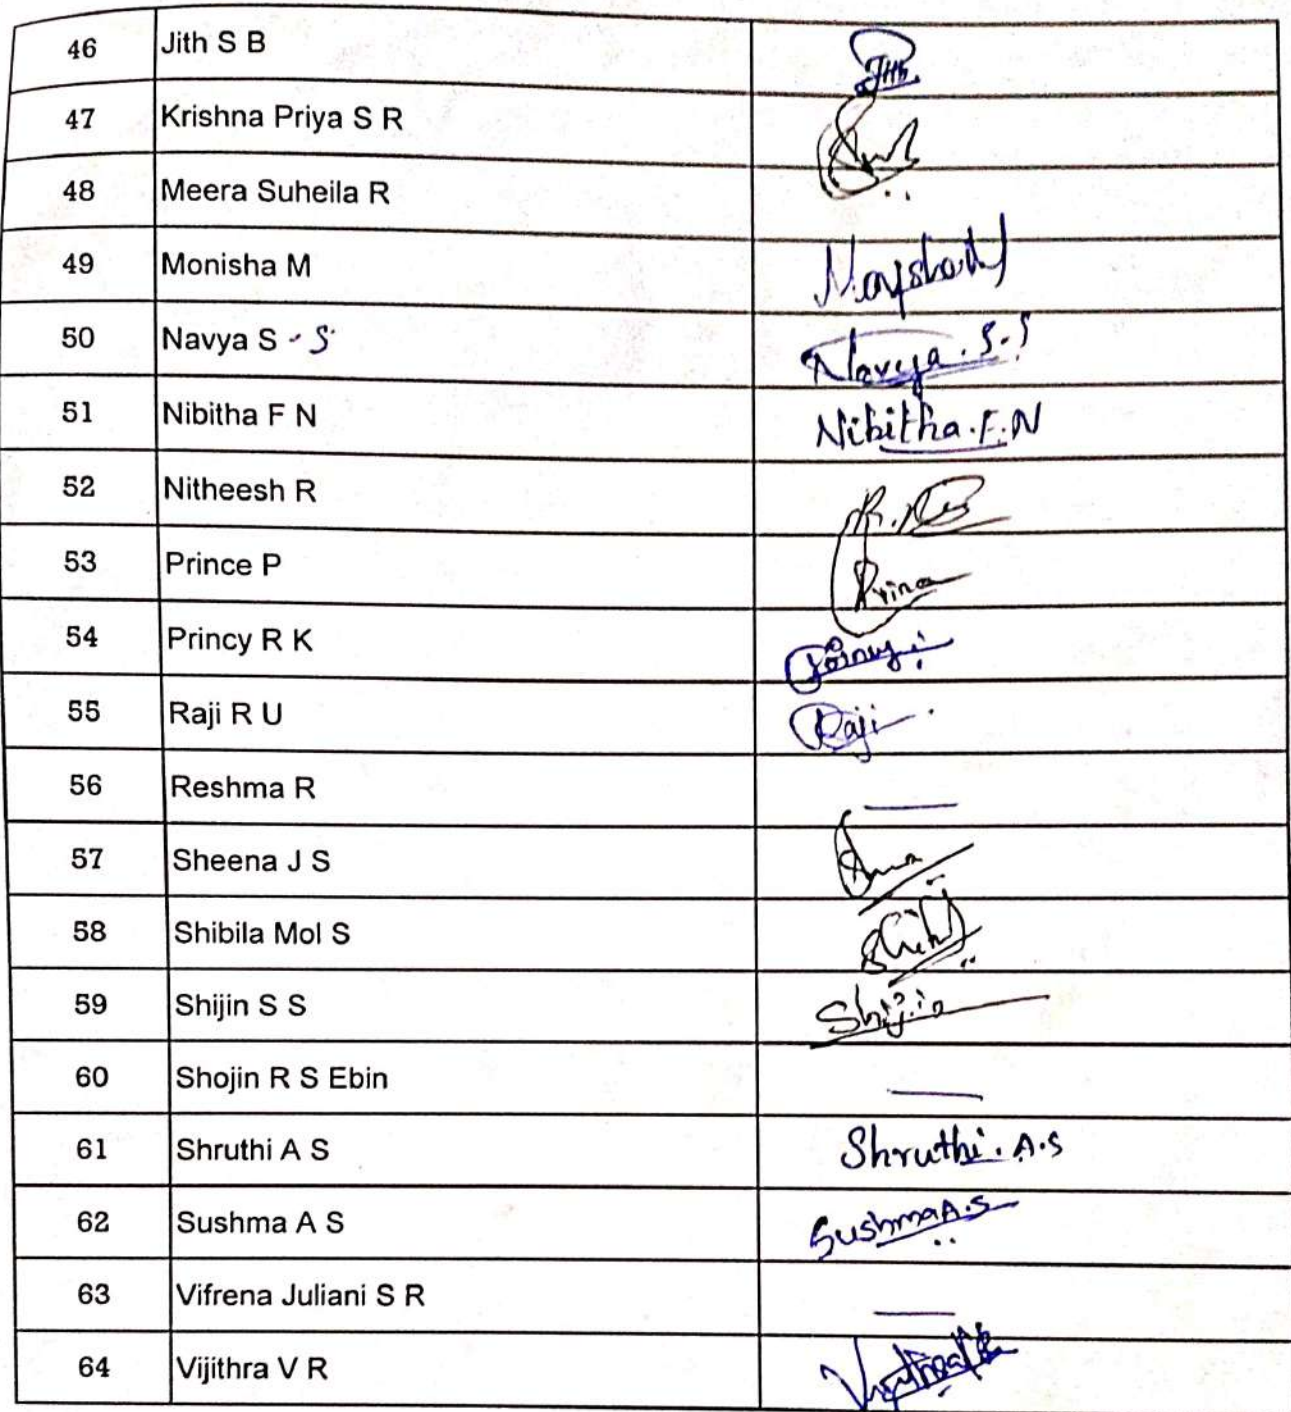 46 Jith S B
47 Krishna Priya S R
48 Meera Suheila R
49 Monisha M
50 Navya S - S Navya . S . S
51 Nibitha F N Nibitha . F . N
52 Nitheesh R
53 Prince P
54 Princy R K
55 Raji R U Raji
56 Reshma R —
57 Sheena J S
58 Shibila Mol S
59 Shijin S S Shijin
60 Shojin R S Ebin —
61 Shruthi A S Shruthi . A . S
62 Sushma A S Sushma A . S
63 Vifrena Juliani S R —
64 Vijithra V R